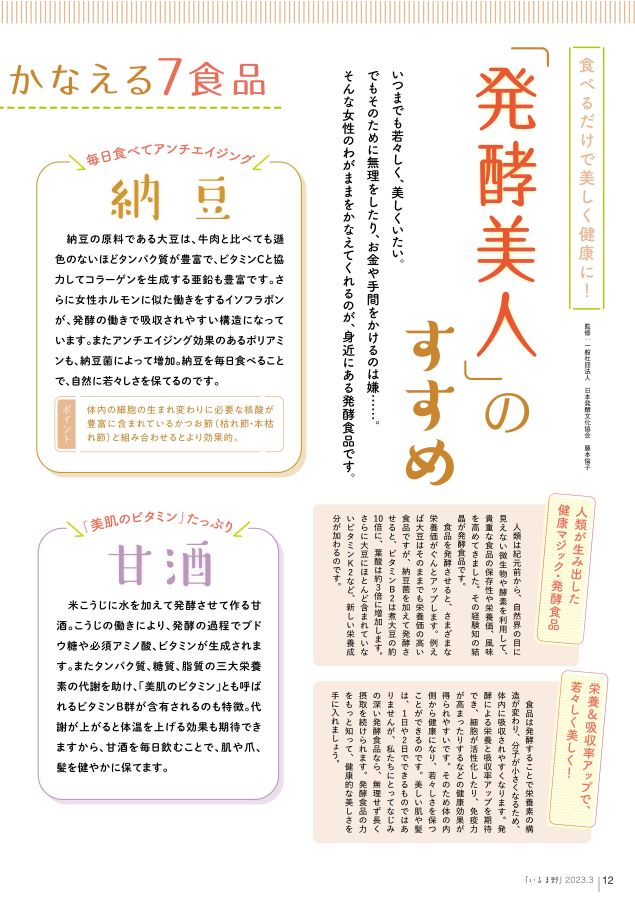 食べるだけで美しく健康に!
「発酵美人」の
すすめ
監修:一般社団法人 日本発酵文化協会 藤本倫子
いつまでも若々しく、美しくいたい。
でもそのために無理をしたり、お金や手間をかけるのは嫌……。
そんな女性のわがままをかなえてくれるのが、身近にある発酵食品です。
人類が生み出した
健康マジック・発酵食品
人類は紀元前から、自然界の目に
見えない微生物や酵素を利用して、
貴重な食品の保存性や栄養価、風味
を高めてきました。その経験知の結
晶が発酵食品です。
食品を発酵させると、さまざまな
栄養価がぐんとアップします。例え
ば大豆はそのままでも栄養価の高い
食品ですが、納豆菌を加えて発酵さ
せると、ビタミンB2は煮大豆の約
10倍に、葉酸は約3倍に増加します。
さらに大豆にほとんど含まれていな
いビタミンK2など、新しい栄養成
分が加わるのです。
栄養&吸収率アップで、
若々しく美しく!
食品は発酵することで栄養素の構
造が変わり、分子が小さくなるため、
体内に吸収されやすくなります。発
酵による栄養と吸収率アップを期待
でき、細胞が活性化したり、免疫力
が高まったりするなどの健康効果が
得られやすいです。そのため体の内
側から健康になり、若々しさを保つ
ことができるのです。美しい肌や髪
は、1日や2日でできるものではあ
りませんが、私たちにとってなじみ
の深い発酵食品なら、無理せず長く
摂取を続けられます。発酵食品の力
をもっと知って、健康的な美しさを
手に入れましょう。
かなえる7食品
毎日食べてアンチエイジング
納豆
納豆の原料である大豆は、牛肉と比べても遜
色のないほどタンパク質が豊富で、ビタミンCと協
力してコラーゲンを生成する亜鉛も豊富です。さ
らに女性ホルモンに似た働きをするイソフラボン
が、発酵の働きで吸収されやすい構造になって
います。またアンチエイジング効果のあるポリアミ
ンも、納豆菌によって増加。納豆を毎日食べること
で、自然に若々しさを保てるのです。
ポイント
体内の細胞の生まれ変わりに必要な核酸が
豊富に含まれているかつお節(枯れ節・本枯
れ節)と組み合わせるとより効果的。
「美肌のビタミン」たっぷり
甘酒
米こうじに水を加えて発酵させて作る甘
酒。こうじの働きにより、発酵の過程でブド
ウ糖や必須アミノ酸、ビタミンが生成されま
す。またタンパク質、糖質、脂質の三大栄養
素の代謝を助け、「美肌のビタミン」とも呼ば
れるビタミンB群が含有されるのも特徴。代
謝が上がると体温を上げる効果も期待でき
ますから、甘酒を毎日飲むことで、肌や爪、
髪を健やかに保てます。
「いるま野」2023.3 12